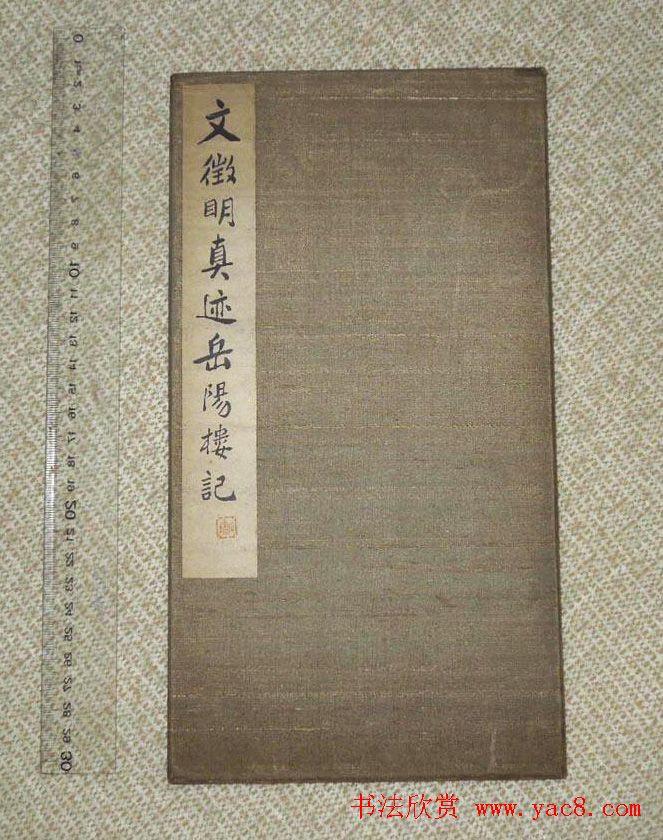 文徵明真迹岳陽樓記
0
1
2
3
4
5
6
7
8
9
10
11
12
13
14
15
16
17
18
19
20
21
22
23
24
25
26
27
28
29
30
书法欣赏 www.yac8.com